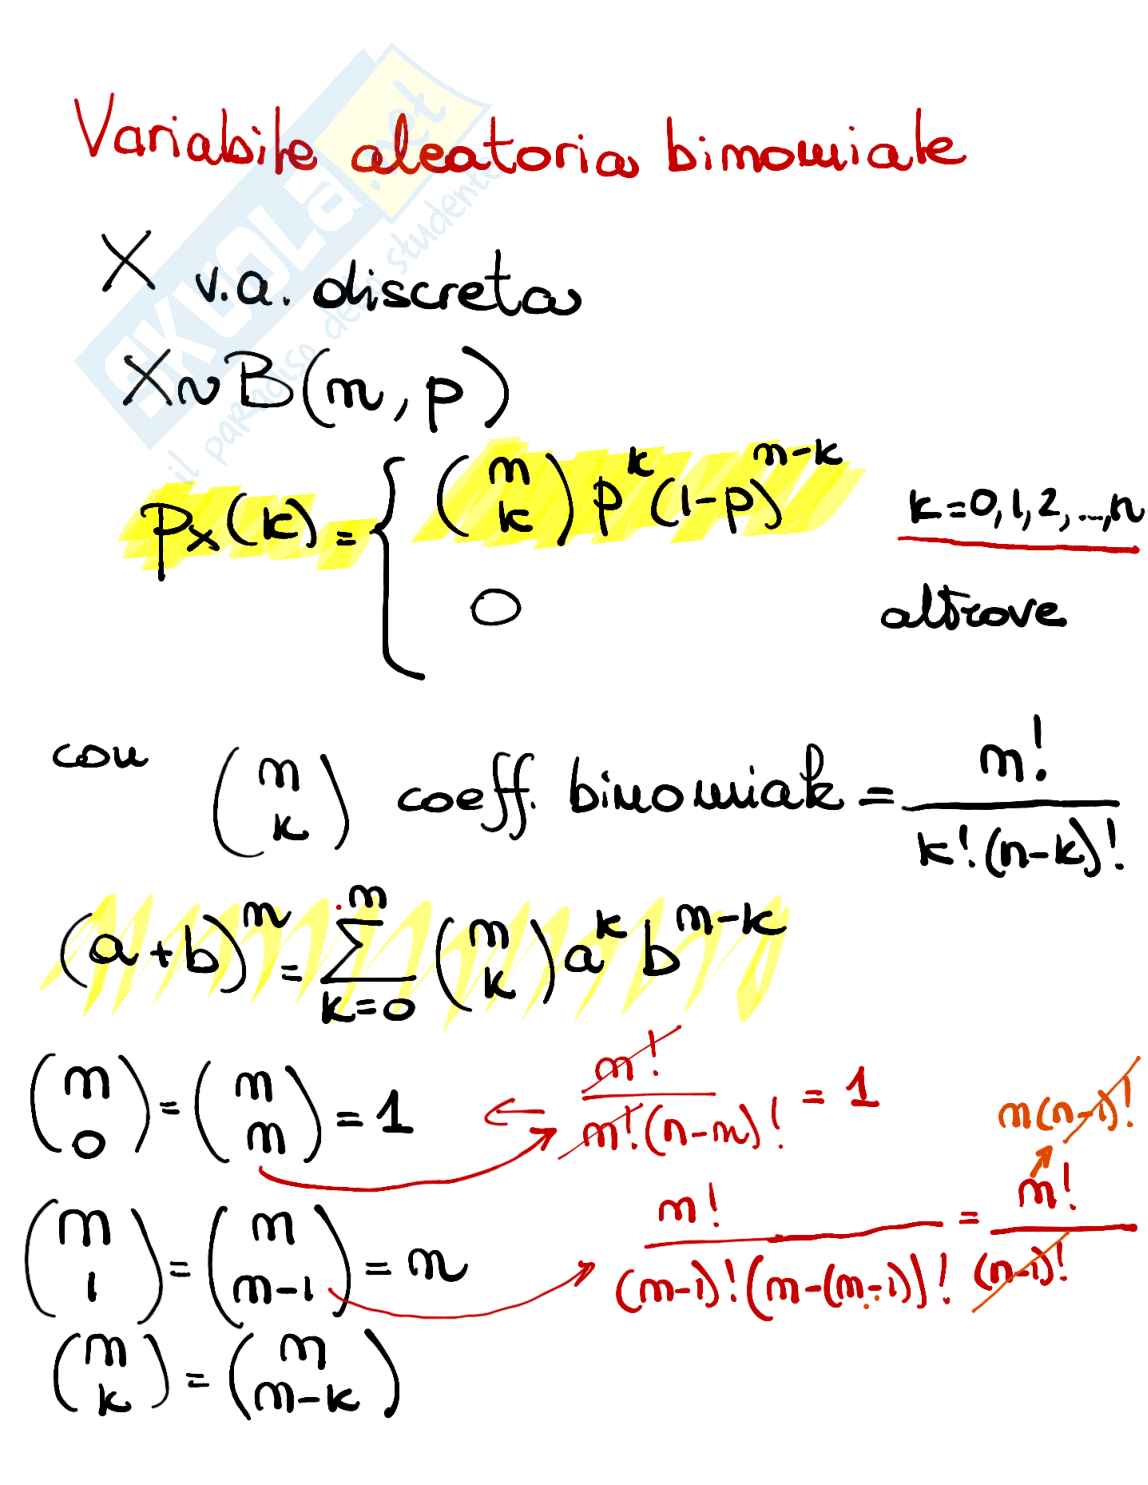 Variabile aleatoria binomiale
X v.a. discreta
X ~ B(n, p)
p_X(k) = { (n k) p^k (1-p)^{n-k} k=0,1,2,...,n
0 altrove
con (n k) coeff. binomiale = n! / k!·(n-k)!
(a+b)^n = ∑_{k=0}^{n} (n k) a^k b^{n-k}
(n 0) = (n n) = 1 ← n! / n!(n-n)! = 1
n(n-1)!
(n 1) = (n n-1) = n → n! / (n-1)!(n-(n-1))! = n! / (n-1)!
(n k) = (n n-k)
SKUOLA.net
il paradiso dello studente